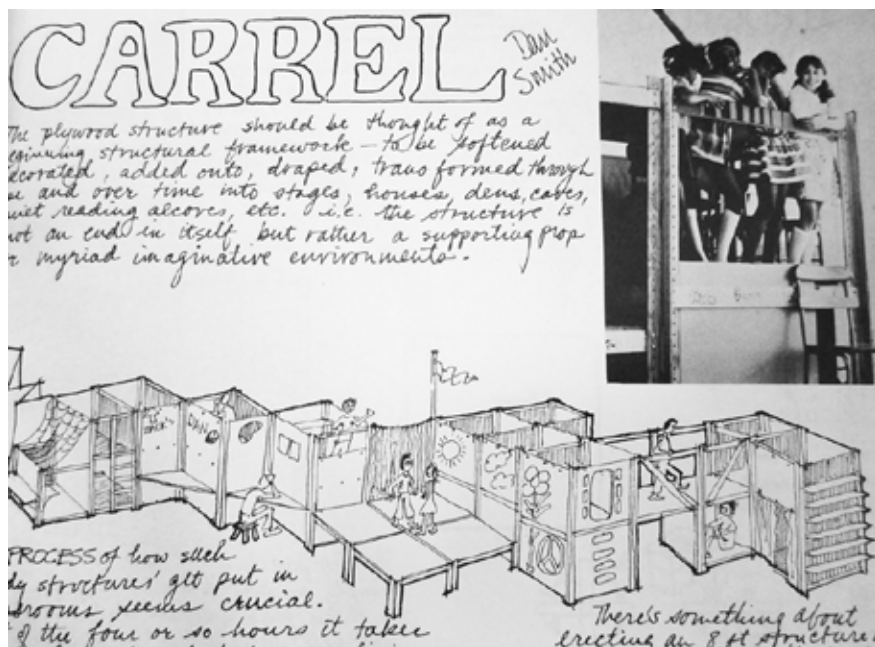 CARREL
Dan
Smith
The plywood structure should be thought of as a
eginning structural framework – to be softened
ecorated, added onto, draped, transformed through
se and over time into stages, houses, dens, caves,
uiet reading alcoves, etc. i.e. the structure is
not an end in itself, but rather a supporting prop
r myriad imaginative environments.
DAN
PROCESS of how such
dy structures' get put in
srooms seems crucial.
of the four or so hours it takes
There's something about
erecting an 8 ft structure